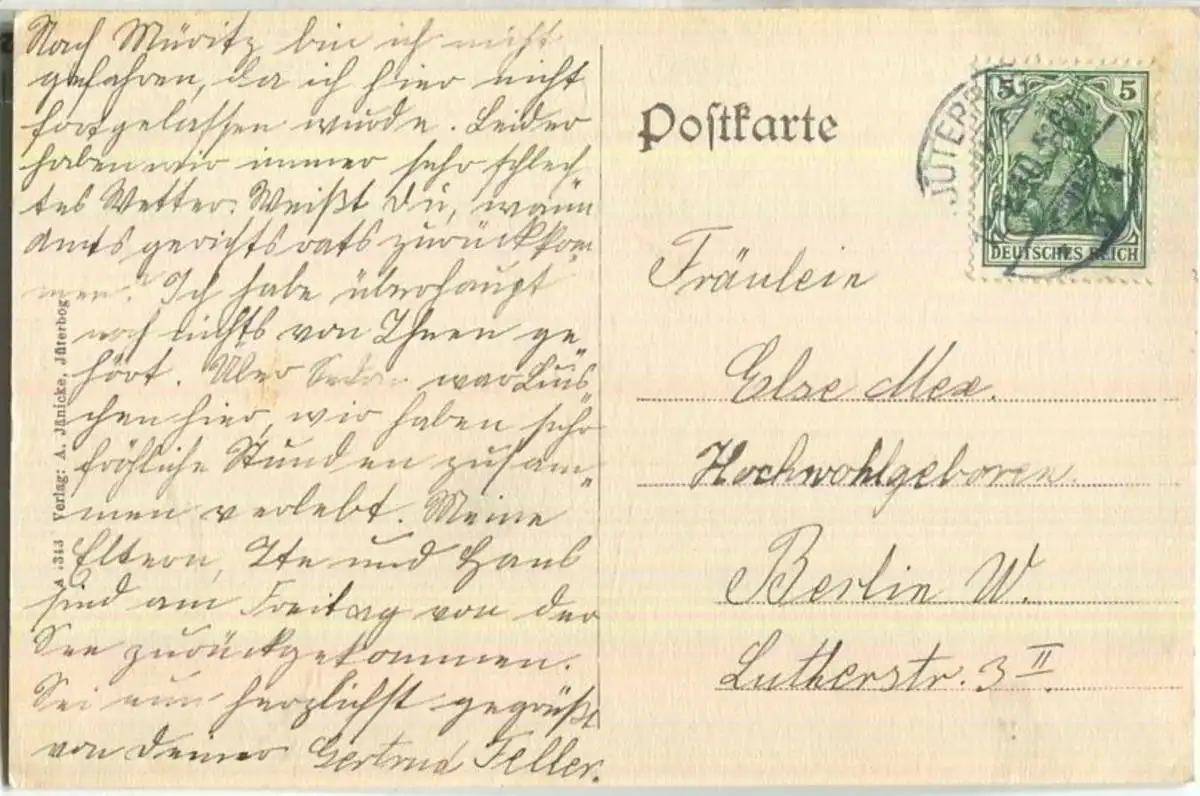 Nach Müritz bin ich nicht
gefahren, da ich hier nicht
fortgelassen wurde. Leider
haben wir immer sehr schlech-
tes Wetter. Weißt Du, wann
Amtsgerichtsrats zurückkom-
men? Ich habe überhaupt
noch nichts von Ihnen ge-
hört. Über Sedan war Luis-
chen hier, wir haben sehr
fröhliche Stunden zusam-
men verlebt. Meine
Eltern, Ite und Hans
sind am Freitag von der
See zurückgekommen.
Sei nun herzlichst gegrüßt
von Deiner Gertrud Feller.
A .343 Verlag: A. Jänicke, Jüterbog
Postkarte
JÜTERB
5 5
DEUTSCHES REICH
Fräulein
Else Mex.
Hochwohlgeboren.
Berlin W.
Lutherstr. 3 II